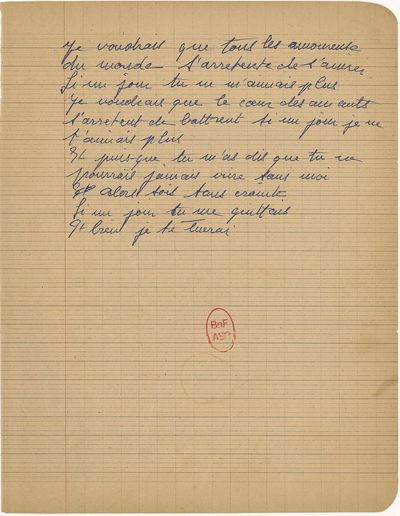 Je voudrais que tous les amoureux
du monde s'arretente de s'aimer
Si un jour tu ne m'aimais plus
Je voudrais que le cœur des amants
s'arretent de battrent si un jour je ne
t'aimais plus
Et puis-que tu m'as dis que tu ne
pourrais jamais vivre sans moi
alors sois sans crainte
Si un jour tu me quittais
Et bien je te tuerai
BnF
ASP